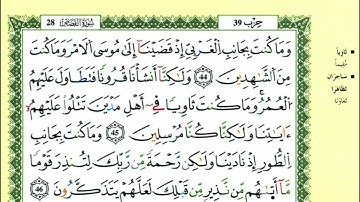 حِزْب 39
سُورَةُ القَصَصِ 28
وَمَا كُنتَ بِجَانِبِ الْغَرْبِيِّ إِذْ قَضَيْنَا إِلَىٰ مُوسَى الْأَمْرَ وَمَا كُنتَ
مِنَ الشَّٰهِدِينَ 44 وَلَٰكِنَّا أَنشَأْنَا قُرُونًا فَتَطَاوَلَ عَلَيْهِمُ
الْعُمُرُ وَمَا كُنتَ ثَاوِيًا فِي أَهْلِ مَدْيَنَ تَتْلُوا عَلَيْهِمْ
ءَايَٰتِنَا وَلَٰكِنَّا كُنَّا مُرْسِلِينَ 45 وَمَا كُنتَ بِجَانِبِ
الطُّورِ إِذْ نَادَيْنَا وَلَٰكِن رَّحْمَةً مِّن رَّبِّكَ لِتُنذِرَ قَوْمًا
مَّا أَتَىٰهُم مِّن نَّذِيرٍ مِّن قَبْلِكَ لَعَلَّهُمْ يَتَذَكَّرُونَ 46
ثَاوِيًا
مُقِيمًا
سَاحِرَانِ
تَظَاهَرَا
تَعَاوَنَا